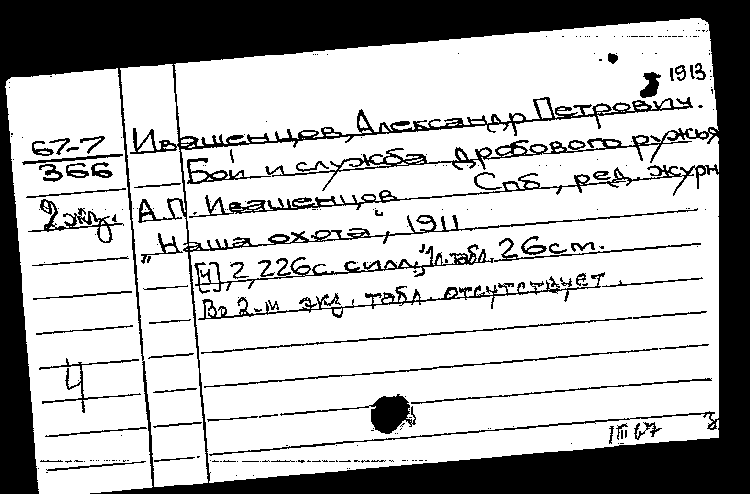 1913
67-7
366
2 экз.
Ивашенцов, Александр Петрович.
Бой и служба дробового ружья
А.П. Ивашенцов Спб, ред. журн
"Наша охота", 1911
[4], 2, 226с. с илл., 1 л. табл. 26см.
Во 2-м экз. табл. отсутствует.
4
III 67